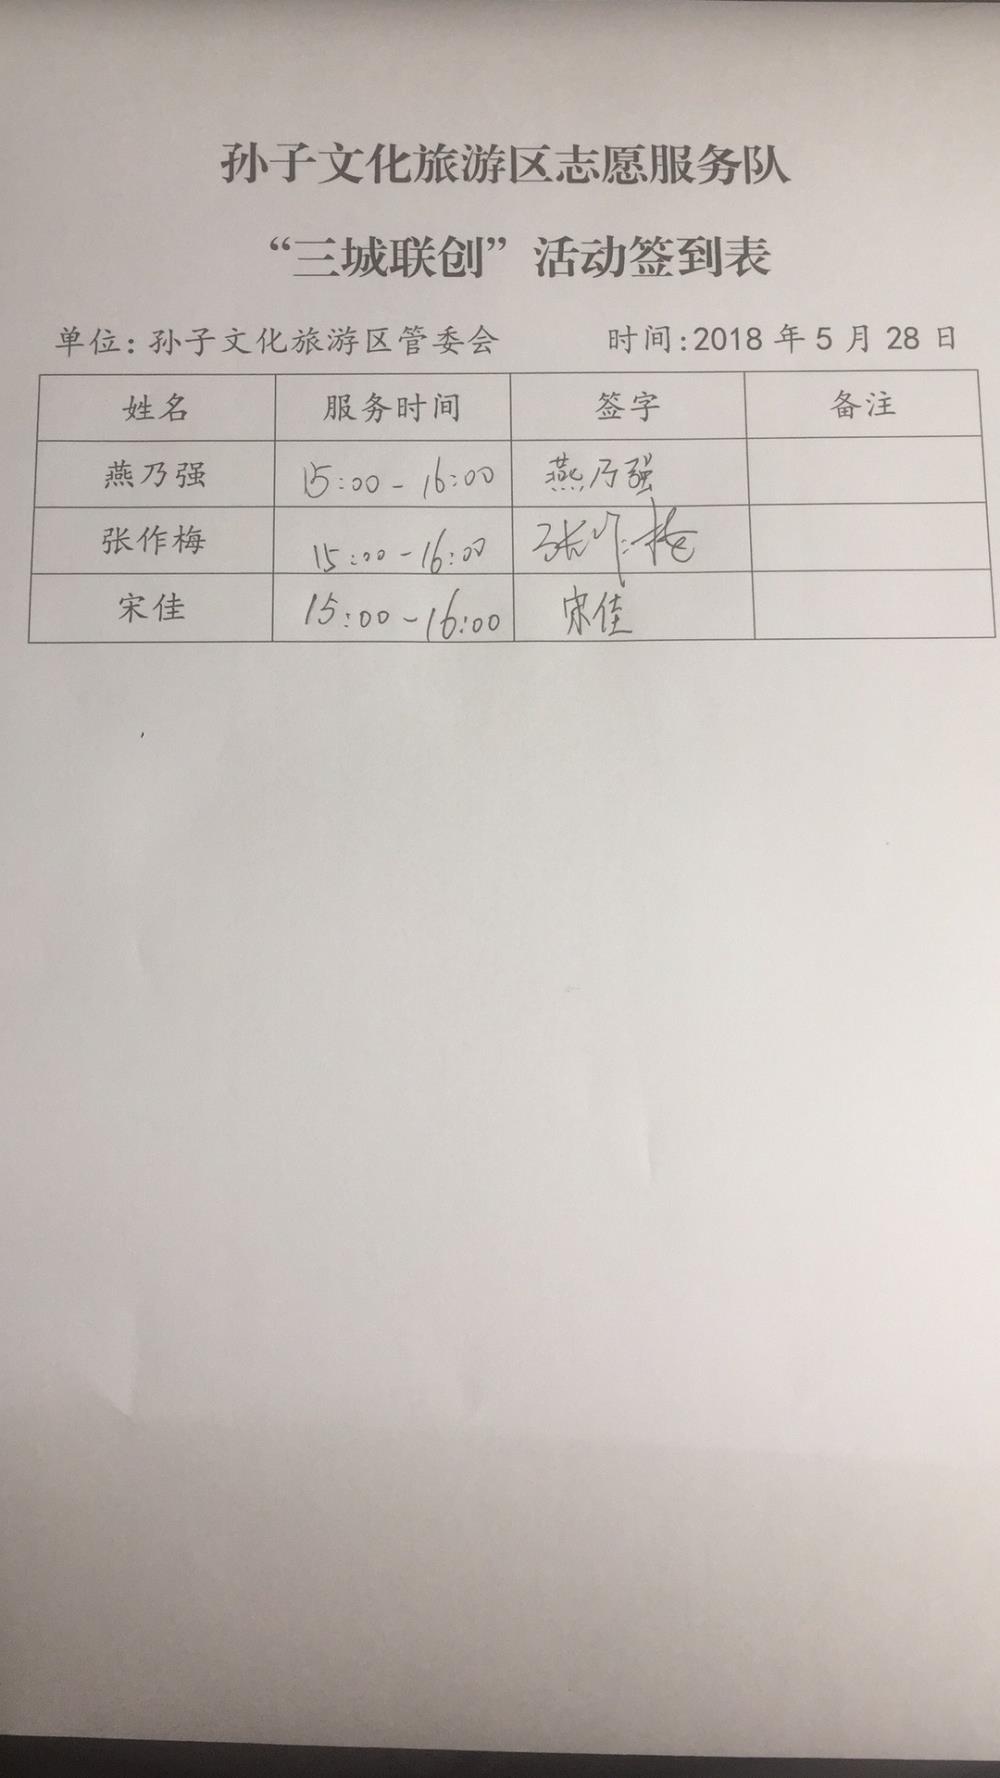 孙子文化旅游区志愿服务队
“三城联创”活动签到表
单位:孙子文化旅游区管委会 时间:2018年5月28日
姓名 服务时间 签字 备注
燕乃强 15:00-16:00 燕乃强
张作梅 15:00-16:00 张作梅
宋佳 15:00-16:00 宋佳